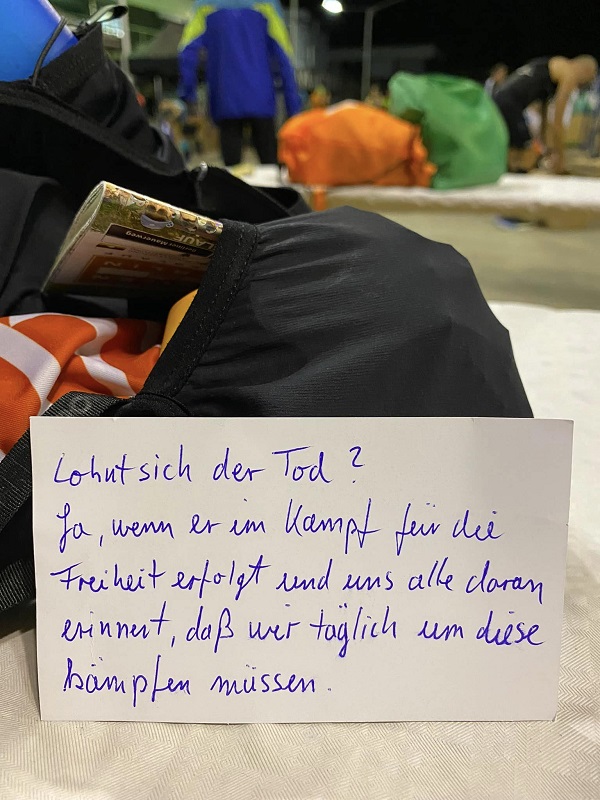 LAUF
Mauerweg
Lohnt sich der Tod?
Ja, wenn er im Kampf für die
Freiheit erfolgt und uns alle daran
erinnert, daß wir täglich um diese
kämpfen müssen.